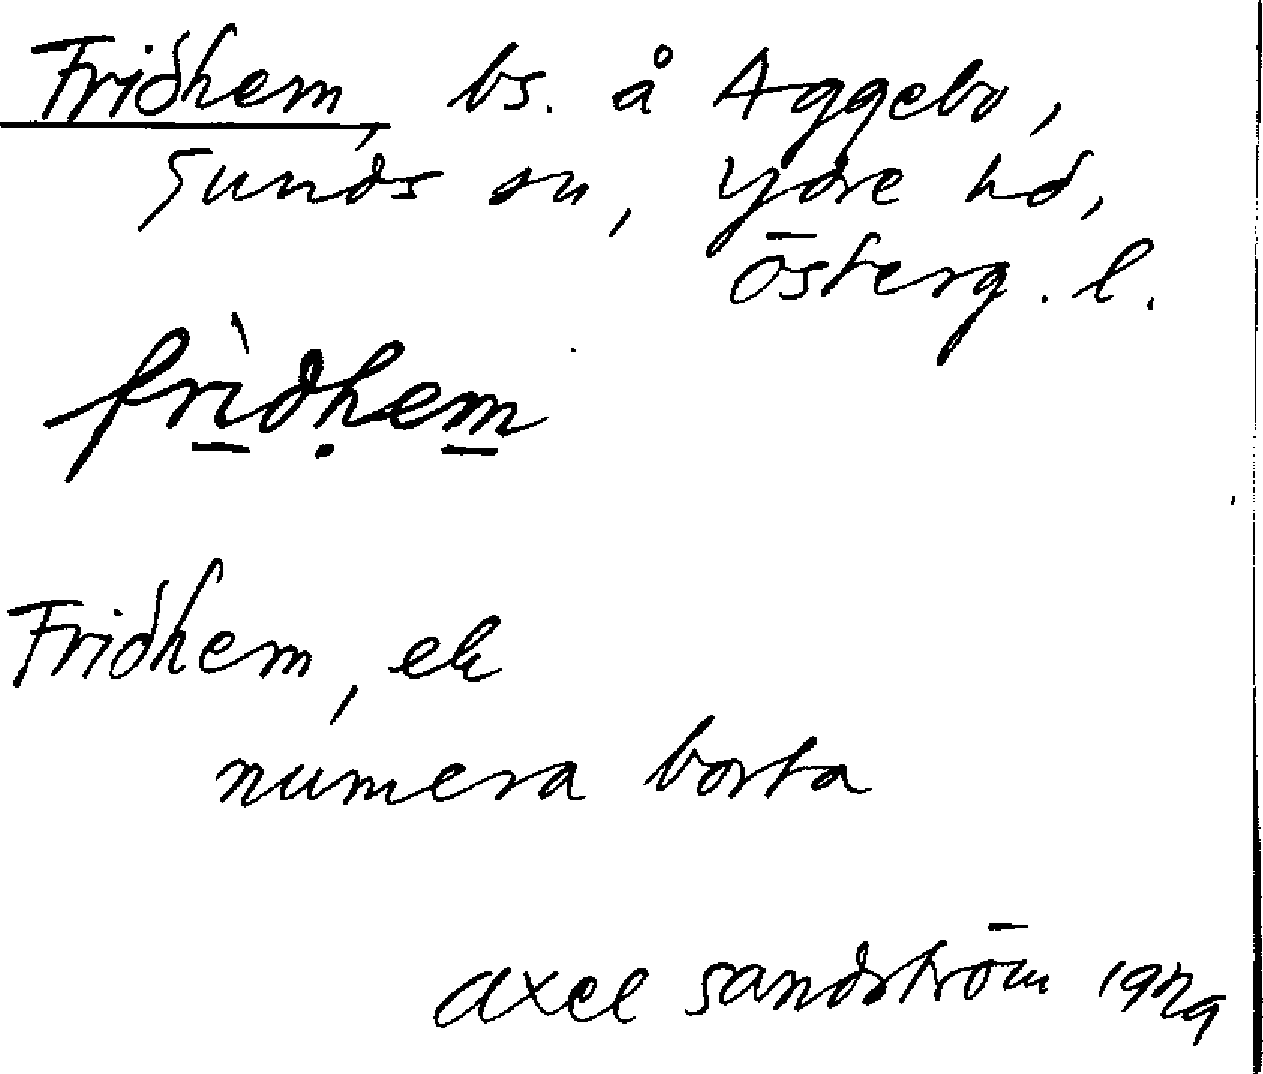 Fridhem, bs. å Aggebo,
Sunds sn, Ydre hd,
Österg. l.
frìdhem
Fridhem, ek
numera borta
Axel Sandström